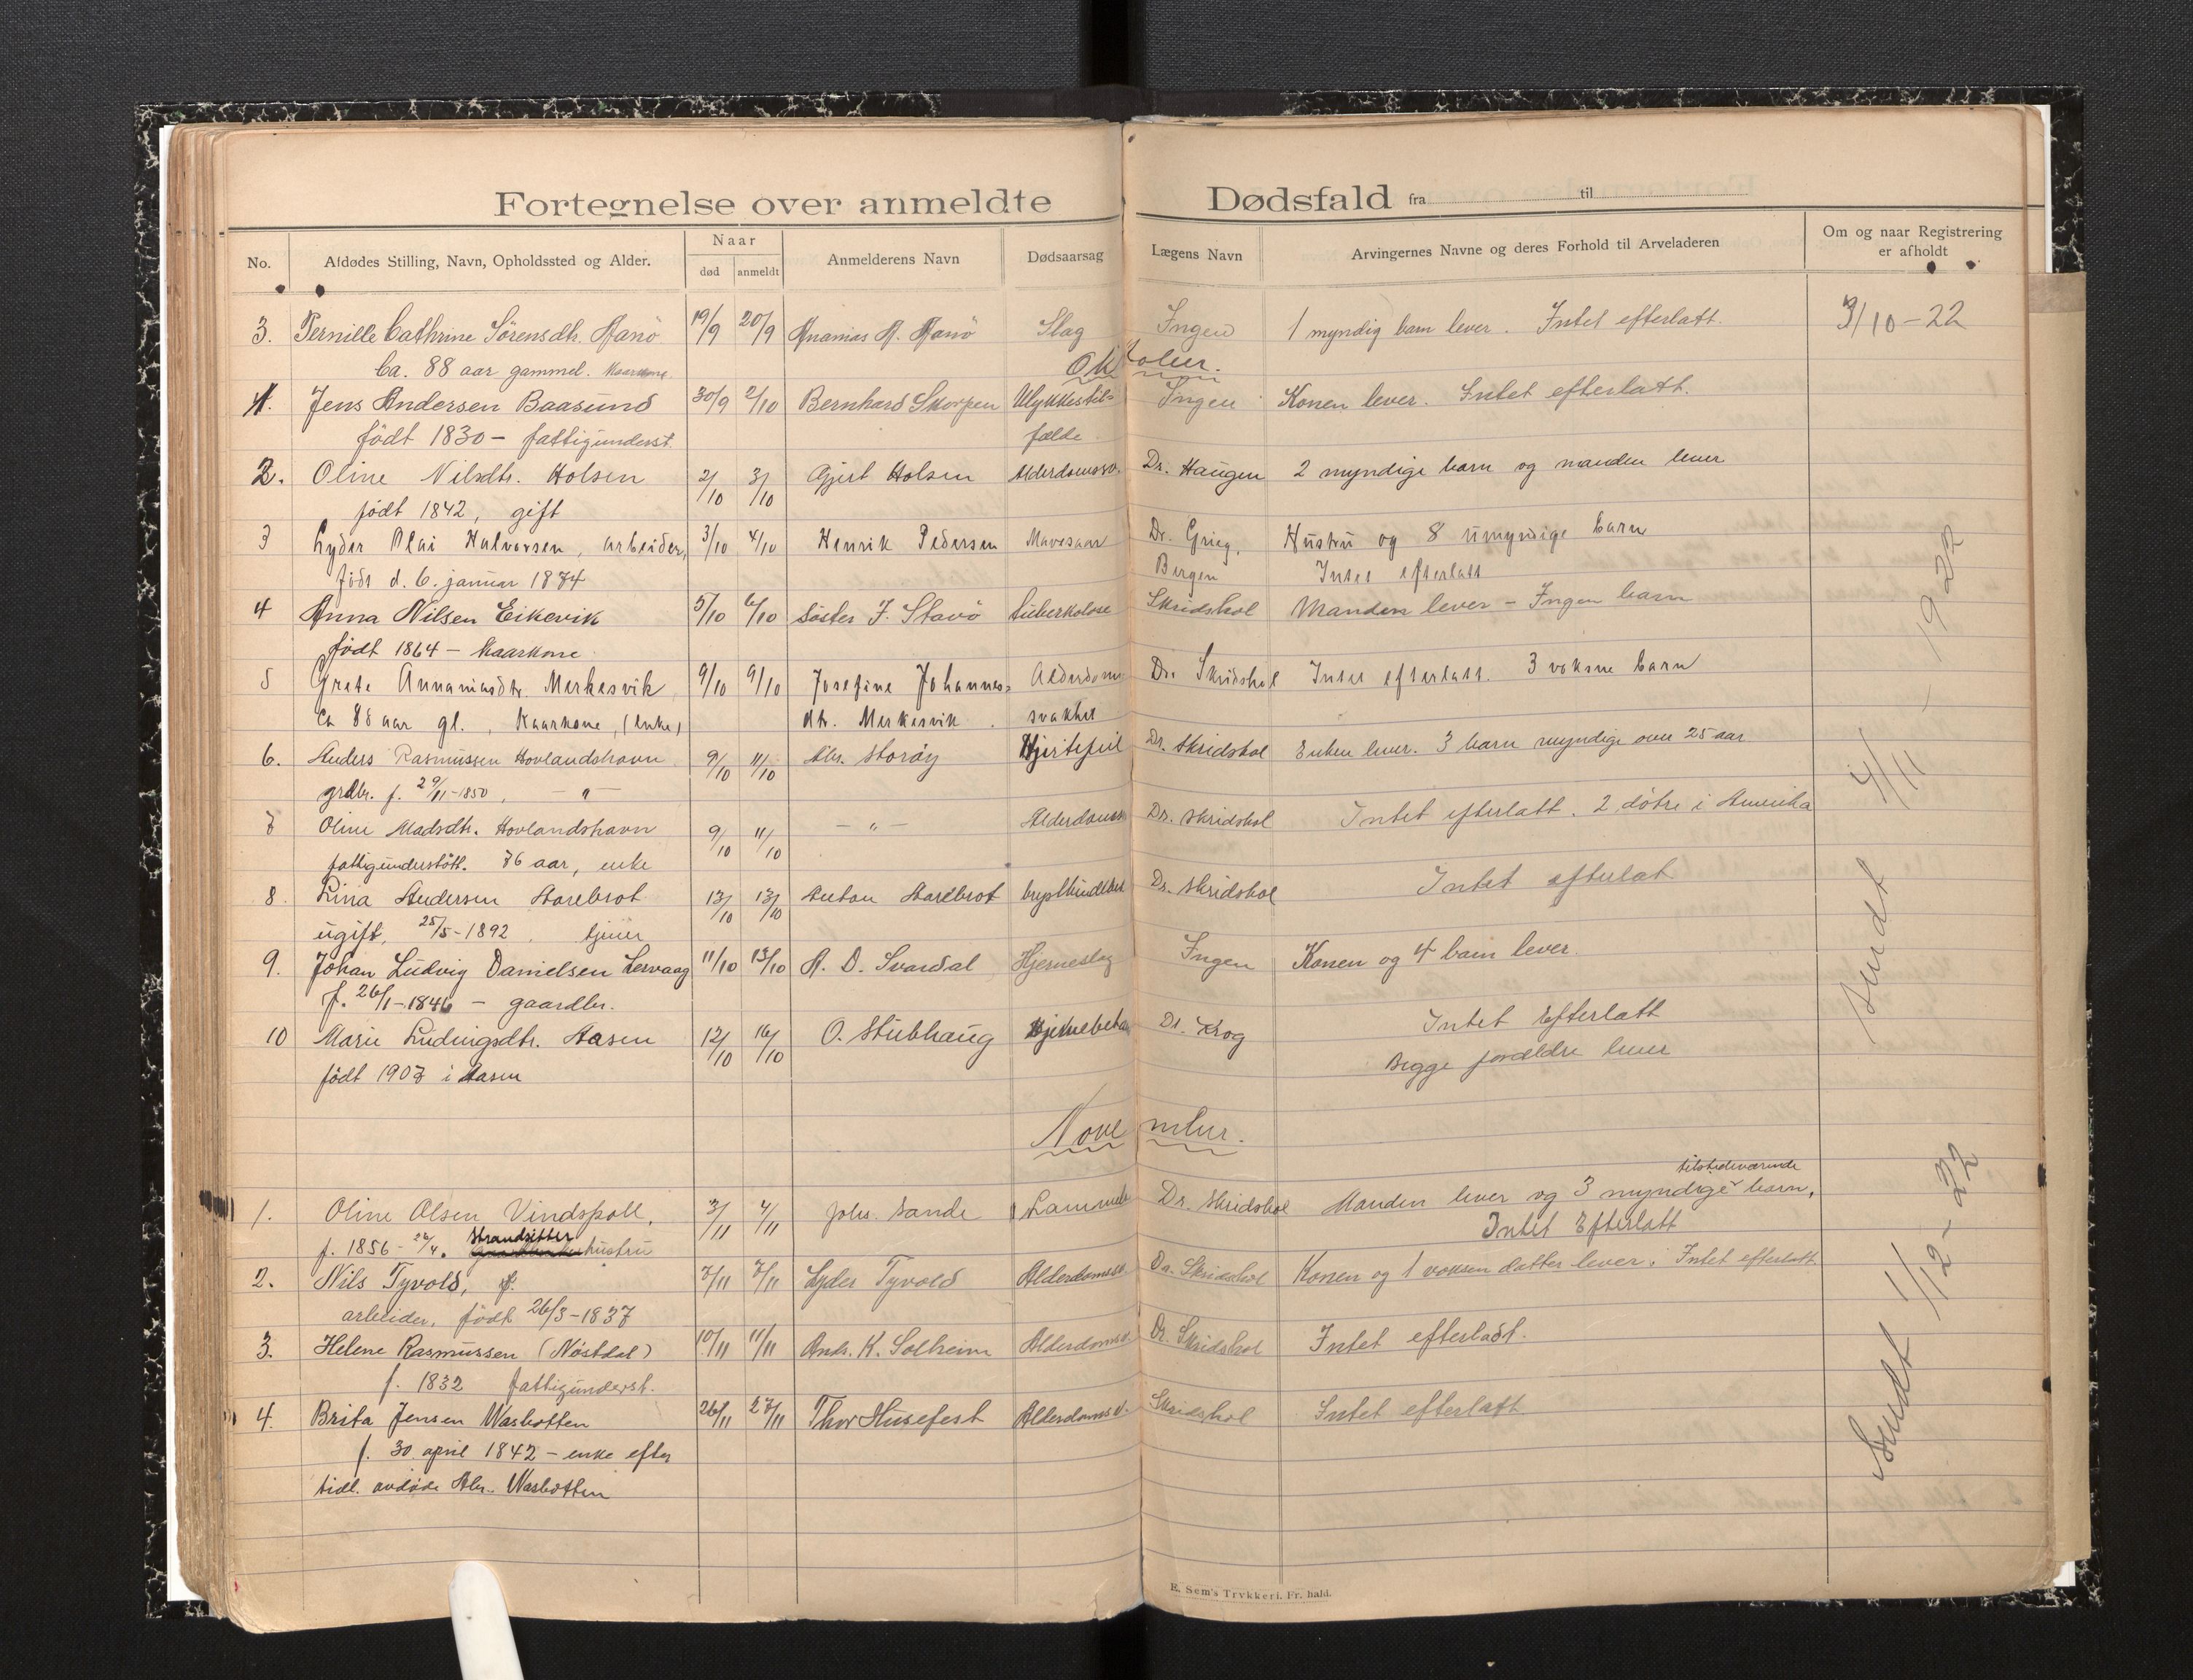 Fortegnelse over anmeldte Dødsfald fra til
No. Afdødes Stilling, Navn, Opholdssted og Alder. Naar død anmeldt Anmelderens Navn Dødsaarsag Lægens Navn Arvingernes Navne og deres Forhold til Arveladeren Om og naar Registrering er afholdt
3. Pernille Cathrine Sörensdtr. Aanö 19/9 20/9 Ananias A. Aanö Slag Ingen 1 myndig barn lever. Intet efterlatt. 3/10-22
Ca. 88 aar gammel. Kaarkone.
Oktober.
1. Jens Andersen Baasund 30/9 2/10 Bernhard Skorpen Ulykkestil= Ingen Konen lever. Intet efterlatt.
födt 1830 - fattigunderst. fælde
2. Oline Nilsdtr. Holsen 2/10 3/10 Gjert Holsen Alderdomssv. Dr. Haugen 2 myndige barn og manden lever
födt 1842, gift
3 Lyder Olai Halvorsen, arbeider, 3/10 4/10 Henrik Pedersen Mavesaar Dr. Grieg, Hustru og 8 umyndige barn
födt d. 6. januar 1874 Bergen Intet efterlatt
4 Anna Nilsen Eikevik 5/10 6/10 Söster J. Stavö tuberkolose Skridshol Manden lever - Ingen barn
födt 1864 - Kaarkone
5 Grete Annaniasdtr. Merkesvik 9/10 9/10 Josefine Johannes= Alderdoms Dr. Skridshol Intet efterlatt. 3 voksne barn
ca 88 aar gl., Kaarkone, (enke) dtr. Merkesvik. svakhet
6. Anders Rasmussen Hovlandshavn 9/10 11/10 Abr. Storöy Hjertefeil Dr. Skridshol Enken lever. 3 barn myndige over 25 aar
grdbr. f. 29/11-1850, - " -
7 Oline Madsdtr. Hovlandshavn 9/10 11/10 - " - Alderdoms Dr. Skridshol Intet efterlatt. 2 dötre i Amerika
fattigunderstött. 76 aar, enke
8. Lina Andersen Aarebrot 13/10 13/10 Anton Aarebrot Dr. Skridshol Intet efterlat
ugift, 25/5-1892. tjener
9. Johan Ludvig Danielsen Lervaag 11/10 13/10 A. D. Svardal Hjerneslag Ingen Konen og 4 barn lever.
f. 26/1-1846 - gaardbr.
10 Marie Ludvigsdtr. Aasen 12/10 16/10 O. Stubhaug Dr. Krog Intet Efterlatt
födt 1907 i Aasen Begge forældre lever
Sendt 4/11 - 1922
November.
tilstedeværende
1. Oline Olsen Vindspoll, 3/11 4/11 Johs. Sande Lammelse Dr. Skridshol Manden lever og 3 myndige barn,
f. 1856 - 26/4. Strandsitter hustru Intet Efterlatt
2. Nils Tyvold, f. 7/11 7/11 Lyder Tyvold Alderdomssv Dr. Skridshol Konen og 1 voksen datter lever. Intet efterlatt
arbeider, födt 26/3-1837
3. Helene Rasmussen (Nöstdal) 10/11 11/11 Andr. K. Solheim Alderdomsv. Dr. Skridshol Intet efterladt.
f. 1832 fattigunderst.
4. Brita Jensen Wasbotten 26/11 27/11 Thor Husefest Alderdomsv. Skridshol Intet efterlatt
f. 30. april 1842 - enke efter
tidl. avdöde Abr. Wasbotten
Sendt 1/12-22
E. Sem's Trykkeri. Fr. hald.